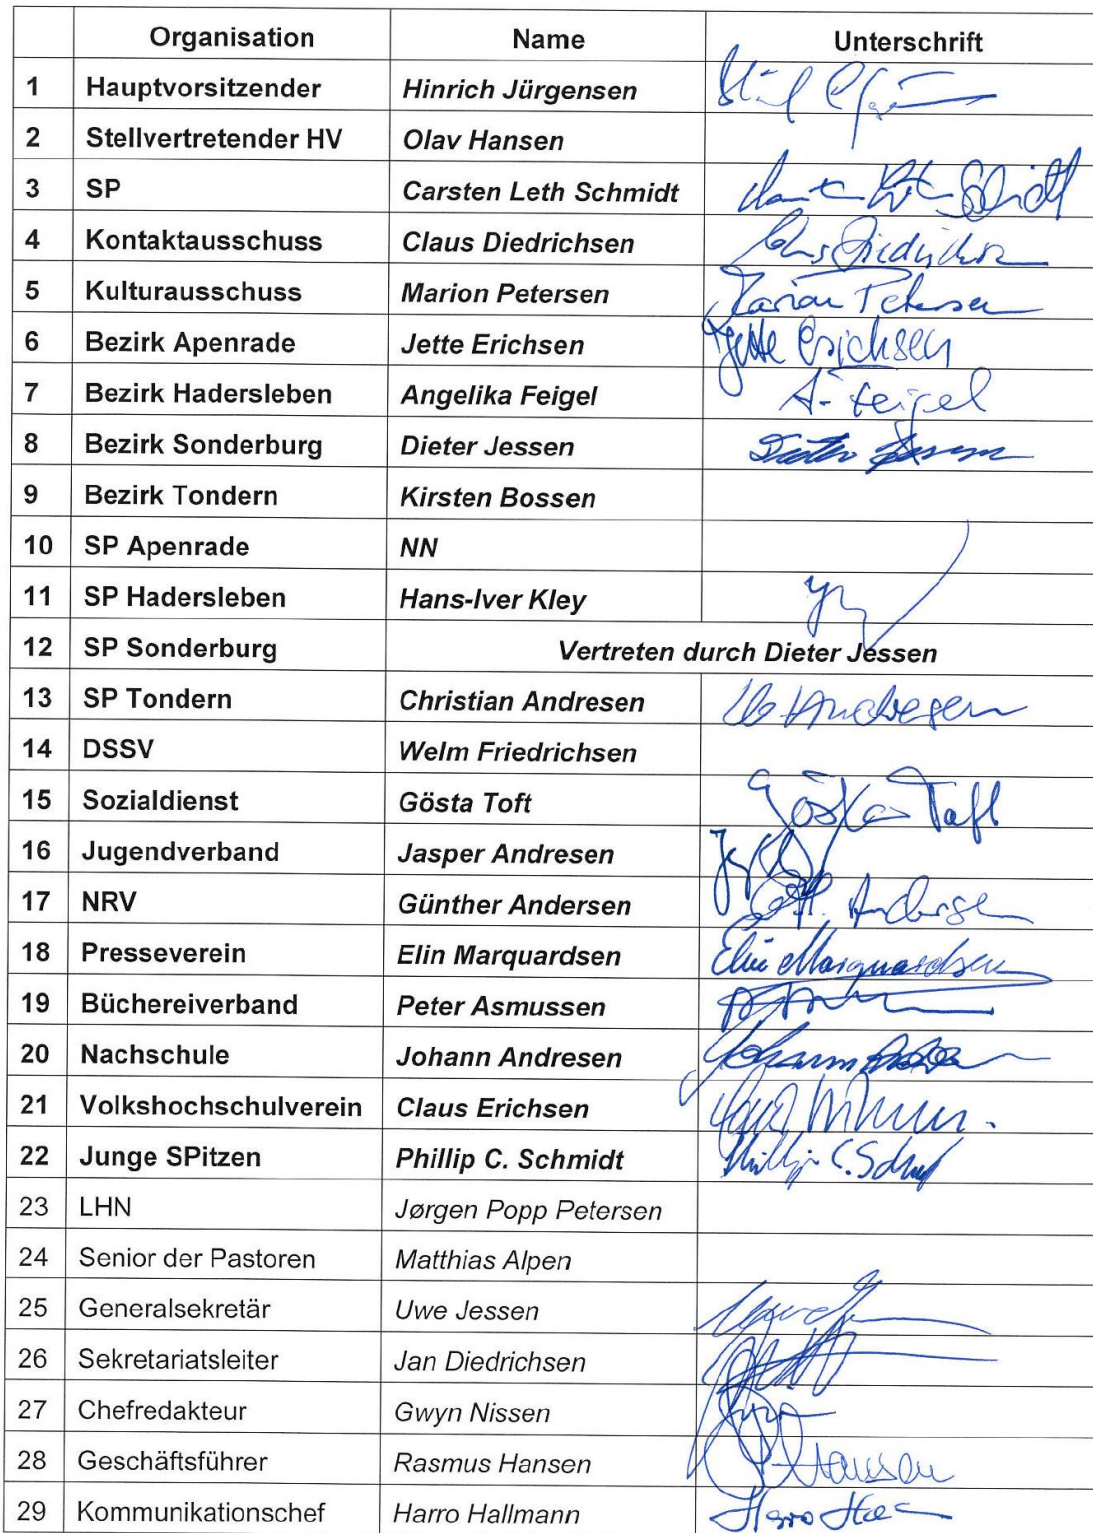 Organisation Name Unterschrift
1 Hauptvorsitzender Hinrich Jürgensen
2 Stellvertretender HV Olav Hansen
3 SP Carsten Leth Schmidt
4 Kontaktausschuss Claus Diedrichsen
5 Kulturausschuss Marion Petersen Marion Petersen
6 Bezirk Apenrade Jette Erichsen Jette Erichsen
7 Bezirk Hadersleben Angelika Feigel A. Feigel
8 Bezirk Sonderburg Dieter Jessen Dieter Jessen
9 Bezirk Tondern Kirsten Bossen
10 SP Apenrade NN
11 SP Hadersleben Hans-Iver Kley
12 SP Sonderburg Vertreten durch Dieter Jessen
13 SP Tondern Christian Andresen Andresen
14 DSSV Welm Friedrichsen
15 Sozialdienst Gösta Toft Gösta Toft
16 Jugendverband Jasper Andresen
17 NRV Günther Andersen Andersen
18 Presseverein Elin Marquardsen Elin Marquardsen
19 Büchereiverband Peter Asmussen
20 Nachschule Johann Andresen Johann Andresen
21 Volkshochschulverein Claus Erichsen
22 Junge SPitzen Phillip C. Schmidt Phillip C. Schmidt
23 LHN Jørgen Popp Petersen
24 Senior der Pastoren Matthias Alpen
25 Generalsekretär Uwe Jessen
26 Sekretariatsleiter Jan Diedrichsen
27 Chefredakteur Gwyn Nissen
28 Geschäftsführer Rasmus Hansen Hansen
29 Kommunikationschef Harro Hallmann Harro